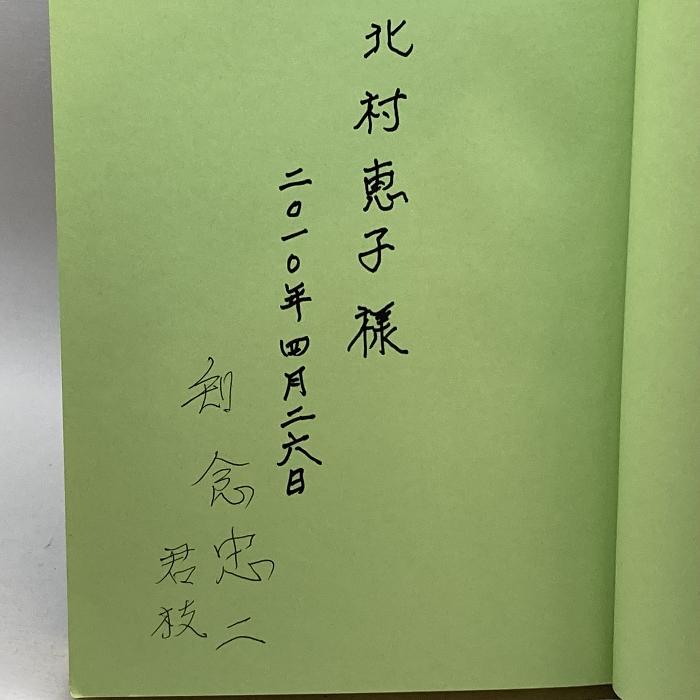 北村恵子様
二〇一〇年四月二六日
知念忠二
君枝